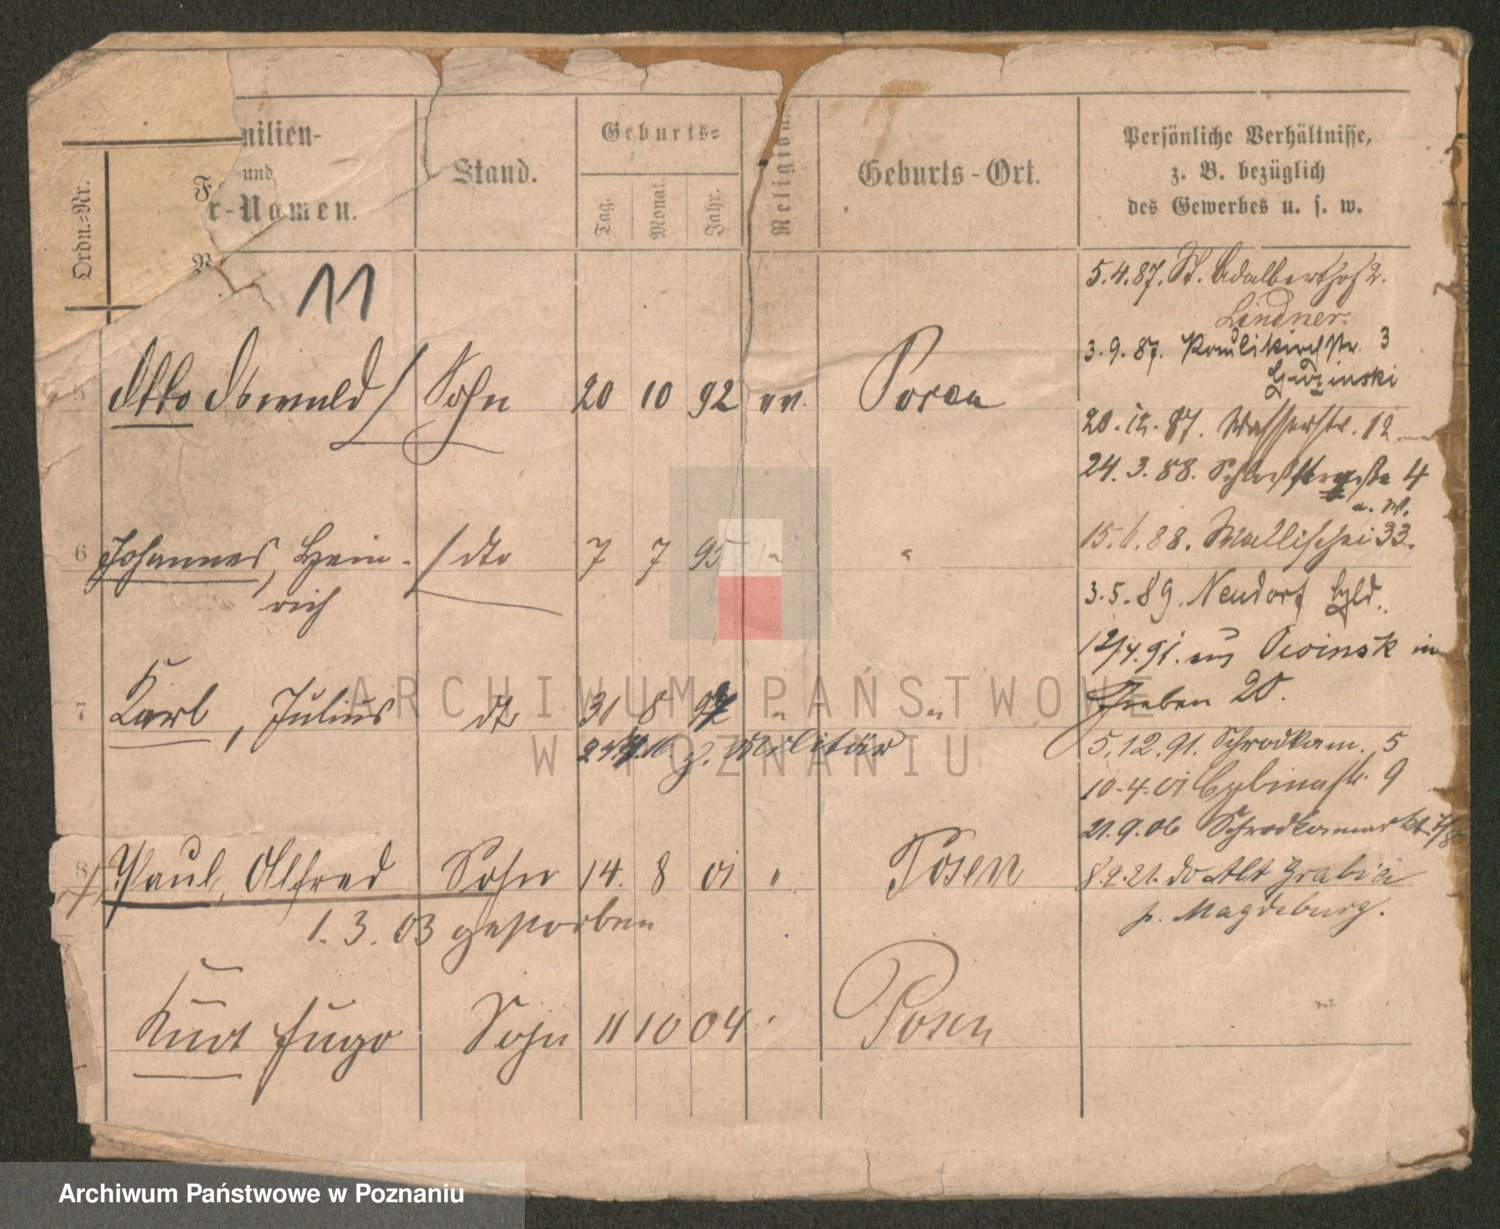 Familien-
und
r-Namen.
Stand.
Geburts-
Tag.
Monat.
Jahr.
Religion.
Geburts-Ort.
Persönliche Verhältnisse,
z. B. bezüglich
des Gewerbes u. s. w.
Ordn.-Nr.
11
Otto Oswald Sohn 20 10 92 ev. Posen
6 Johannes, Hein- dto 7 7 95 " "
rich
7 Karl, Julius dto 31 8 97 " "
z. Militär
8 Paul, Alfred Sohn 14. 8 01 " Posen
1. 3. 03 gestorben
Kurt Hugo Sohn 11 10 04 " Posen
5.4.87. St. Adalbertstr 2.
Lindner.
3.9.87. Paulikirchstr. 3
Gudzinski
20.12.87. Wasserstr. 12
24.3.88. Schloßstraße 4
a. W.
15.6.88. Wallischei 33.
3.5.89. Neudorf
12/4.91. aus in
20.
5.12.91. Schrodkam. 5
10.4.01 Cybinastr. 9
21.9.06 Schrodkamarkt 7/8
8.2.21. do Alt Grabia
p. Magdeburg.
ARCHIWUM PAŃSTWOWE
W POZNANIU
Archiwum Państwowe w Poznaniu